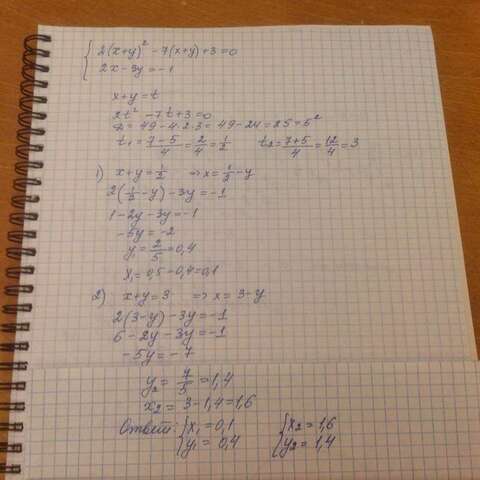 { 2(x+y)² - 7(x+y) + 3 = 0
2x - 3y = -1
x+y = t
2t² - 7t + 3 = 0
D = 49 - 4·2·3 = 49 - 24 = 25 = 5²
t₁ = (7-5)/4 = 2/4 = 1/2 t₂ = (7+5)/4 = 12/4 = 3
1) x+y = 1/2 => x = 1/2 - y
2(1/2 - y) - 3y = -1
1 - 2y - 3y = -1
-5y = -2
y₁ = 2/5 = 0,4
x₁ = 0,5 - 0,4 = 0,1
2) x+y = 3 => x = 3-y
2(3-y) - 3y = -1
6 - 2y - 3y = -1
-5y = -7
y₂ = 7/5 = 1,4
x₂ = 3 - 1,4 = 1,6
Ответ: { x₁ = 0,1 { x₂ = 1,6
y₁ = 0,4 y₂ = 1,4